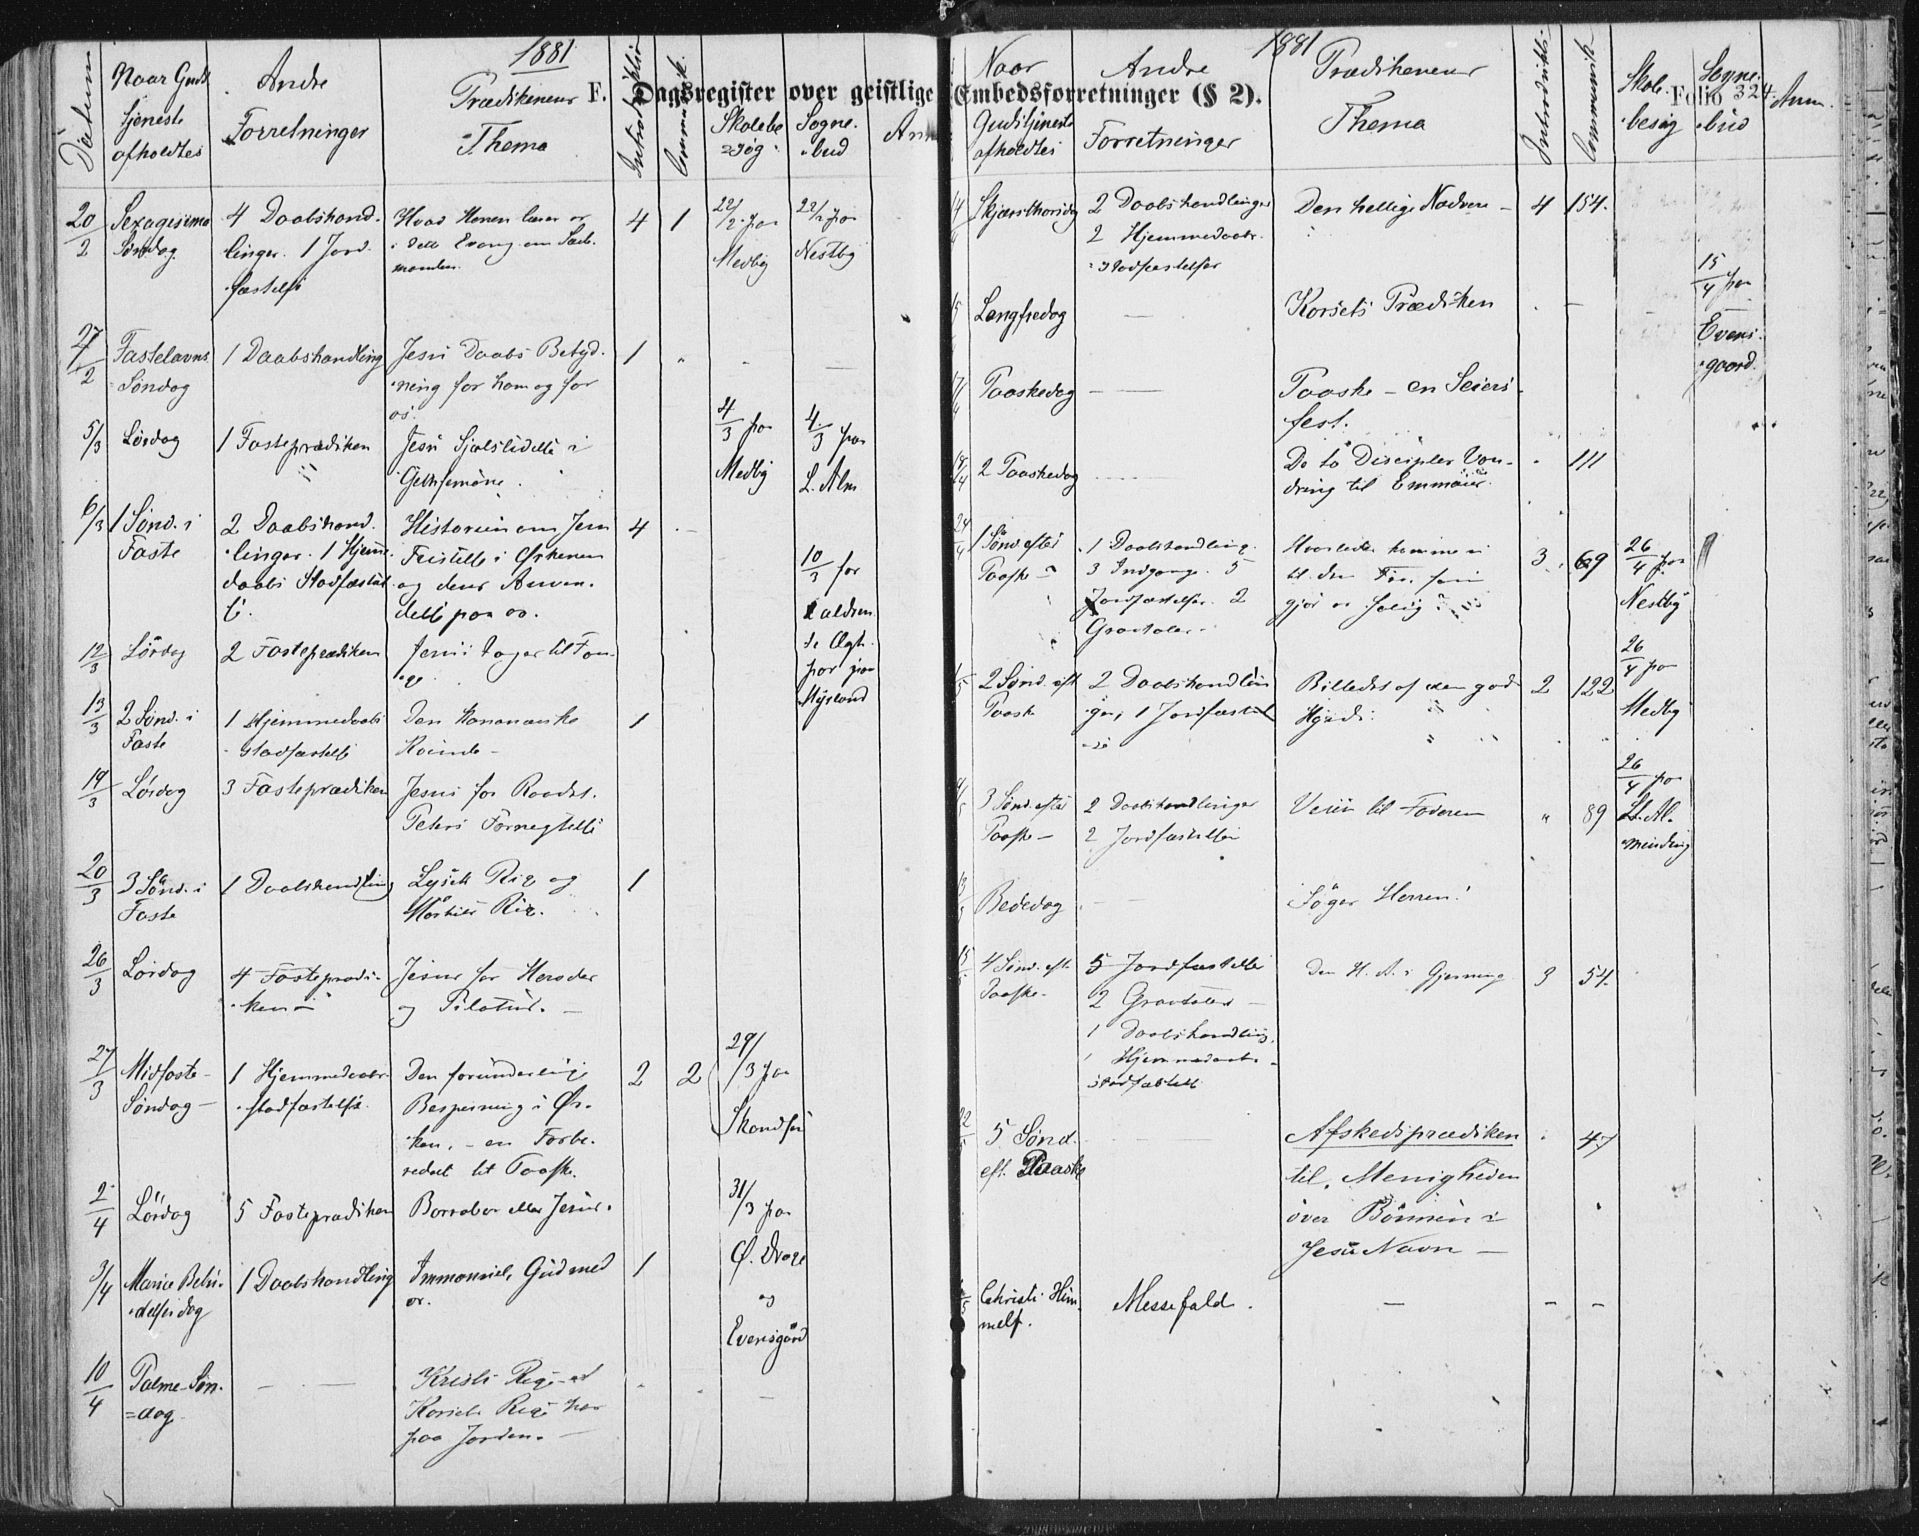 1881
F. Dagsregister over geistlige
Datum
Naar Guds
tjeneste
afholdtes
Andre
Forretninger
Prædikenens
Thema
Introduktion
Communik.
Skolebe
søg
Sogne-
bud
Anm
20/2
Sexagesima
Søndag
4 Daabshand-
linger. 1 Jord-
fæstelse
Hvad Herren lærer os
i dette Evang. om Sæde-
manden.
4
1
22/2 paa
Medby
22/2 paa
Nestby
27/2
Fastelavns
Søndag
1 Daabshandling
Jesu Daabs Betyd-
ning for ham og for
os.
1
5/3
Lørdag
1 Fasteprædiken
Jesu Sjælslidelse i
Gethsemane.
4/3 paa
Medby
4/3 paa
L. Alm
6/3
1 Sønd. i
Faste
2 Daabshand-
linger. 1 Hjemme-
daabs Stadfæstel-
se.
Historien om Jesu
Fristelse i Ørkenen
og dens Anven-
delse paa os.
4
10/3 for
Myrland
12/3
Lørdag
2 Fasteprædiken
Jesus tages til Fan-
ge.
13/3
2 Sønd. i
Faste
1 Hjemmedaabs
stadfæstelse
Den kananæiske
Kvinde -
1
19/3
Lørdag
3 Fasteprædiken
Jesus for Raadet.
Peters Fornegtelse
20/3
3 Sønd. i
Faste
1 Daabshandling
Lysets Rige og
Mørkets Rige.
1
26/3
Lørdag
4 Fasteprædi-
ken -
Jesus for Herodes
og Pilatus. -
27/3
Midfaste-
Søndag -
1 Hjemmedaabs-
stadfæstelse
Den forunderlige
Bespisning i Ør-
ken, - en Forbe-
redelse til Paaske.
2
2
29/3 paa
2/4
Lørdag
5 Fasteprædiken
Barrabas eller Jesus.
31/3 paa
Ø. Drage
og
Evensgård
3/4
Mariæ Bebu-
delsesdag
1 Daabshandling
Immanuel, Gud med
os.
1
10/4
Palme-Søn-
=dag.
Kristi Rige et
Korsets Rige her
paa Jorden. -
1881
Embedsforretninger (§ 2).
Folio 324.
Naar
Gudstjeneste
afholdtes
Andre
Forretninger
Prædikenens
Thema
Introduktion
Communik.
Skole-
besøg
Sogne-
bud
Anm.
Skjærsthorsdag
2 Daabshandlinger
2 Hjemmedaabs-
stadfæstelser
Den hellige Nadvere -
4
154.
Langfredag
Korsets Prædiken
15/4 paa
Evens-
gaard.
Paaskedag
Paaske - en Seiers-
fest.
18/4
2 Paaskedag
De to Disciples Van-
dring til Emmaus.
111
24/4
1 Sønd. efter
Paaske -
1 Daabshandling.
3 Indgange. 5
Jordfæstelser. 2
Gravtaler.
Hvorledes komme vi
til den Tro, som
gjør os salig?
3
69
26/4 paa
Nestby
2 Sønd. eft
Paaske
2 Daabshandlin
ger, 1 Jordfæstel
se
Billedet af den gode
Hyrde.
2
122
26/4 paa
Medby
3 Sønd. efter
Paaske -
2 Daabshandlinger
2 Jordfæstelser
Veien til Faderen
"
89
26/4 paa
St. Al-
minding
Bededag
Søger Herren!
4 Sønd. eft.
Paaske-
5 Jordfæstelse
2 Gravtaler -
1 Daabshandling,
1 Hjemmedaabs-
stadfæstelse
Den H. A.s Gjerning
3
54.
5 Sønd.
eft. Paaske
Afskedsprædiken
til Menigheden
over Bønnen i
Jesu Navn -
47
Christi Him-
melf.
Messefald.